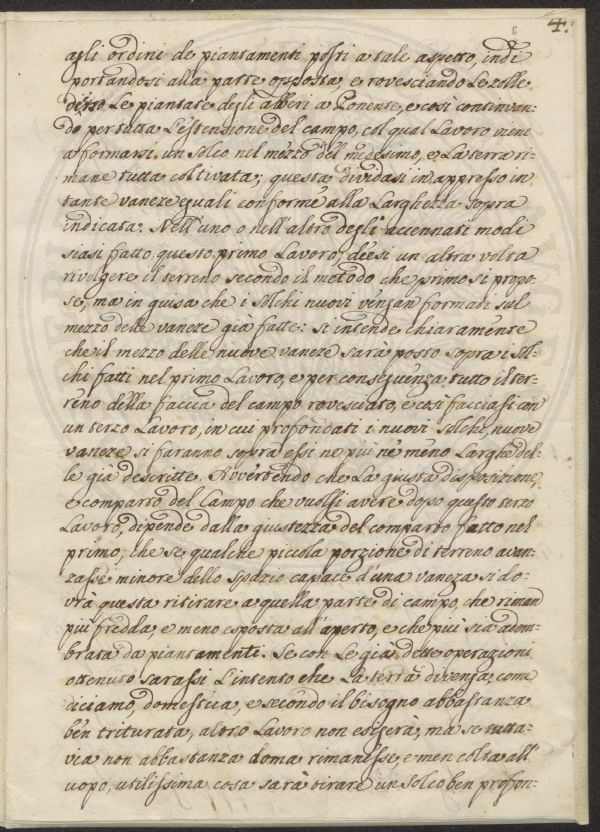 6
4.
agli ordini de piantamenti posti a tale aspetto, indi
portandosi alla parte opposta e rovesciando Le zolle
Le piantate degli alberi a Ponente, e cosi continvan-
do per tutta L'estensione del campo, col qual Lavoro viene
a formarsi un solco nel mezzo del medesimo, e La terra ri-
mane tutta coltivata; questa dividasi in appresso in
tante vaneze eguali conforme alla Larghezza sopra
indicata. Nell'uno o nell'altro degli accennati modi
siasi fatto questo primo Lavoro, déesi un altra volta
rivolgere il terreno secondo il metodo che primo si propo-
se, ma in guisa che i solchi nuovi vengan formati sul
mezzo delle vaneze già fatte: si intende chiaramente
che il mezzo delle nuove vaneze sarà posto sopra i sol-
chi fatti nel primo Lavoro, e per conseguenza tutto il ter-
reno della faccia del campo rovesciato, e così facciasi con
un terzo Lavoro, in cui profondati i nuovi solchi, nuove
vaneze si faranno sopra essi ne più nè meno Larghe del-
le già descritte. Avvertendo che La giusta disposizione,
e comparto del Campo che vuolsi avere dopo questo terzo
Lavoro, dipende dalla giustezza del comparto fatto nel
primo; che se qualche piccola porzione di terreno avan-
zasse minore dello spazio capace d'una vaneza si do-
vrà questa ritirare a quella parte di campo, che riman
più fredda, e meno esposta all'aperto, e che più sia adom-
brata da piantamenti. Se con Le già dette operazioni
ottenuto sarassi L'intento che La terra divenga, come
diciamo, domestica, e secondo il bisogno abbastanza
ben triturata, altro Lavoro non esigerà, ma se tutta-
via non abbastanza doma rimanesse, e men colta all'
uopo, utilissima cosa sarà tirare un solco ben profon-